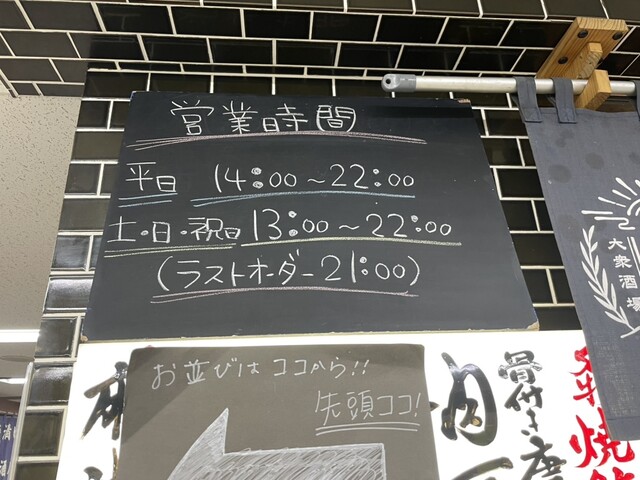 営業時間
平日 14:00～22:00
土・日・祝日 13:00～22:00
(ラストオーダー21:00)
お並びはココから!!
先頭ココ!
大衆酒場
骨付き
焼